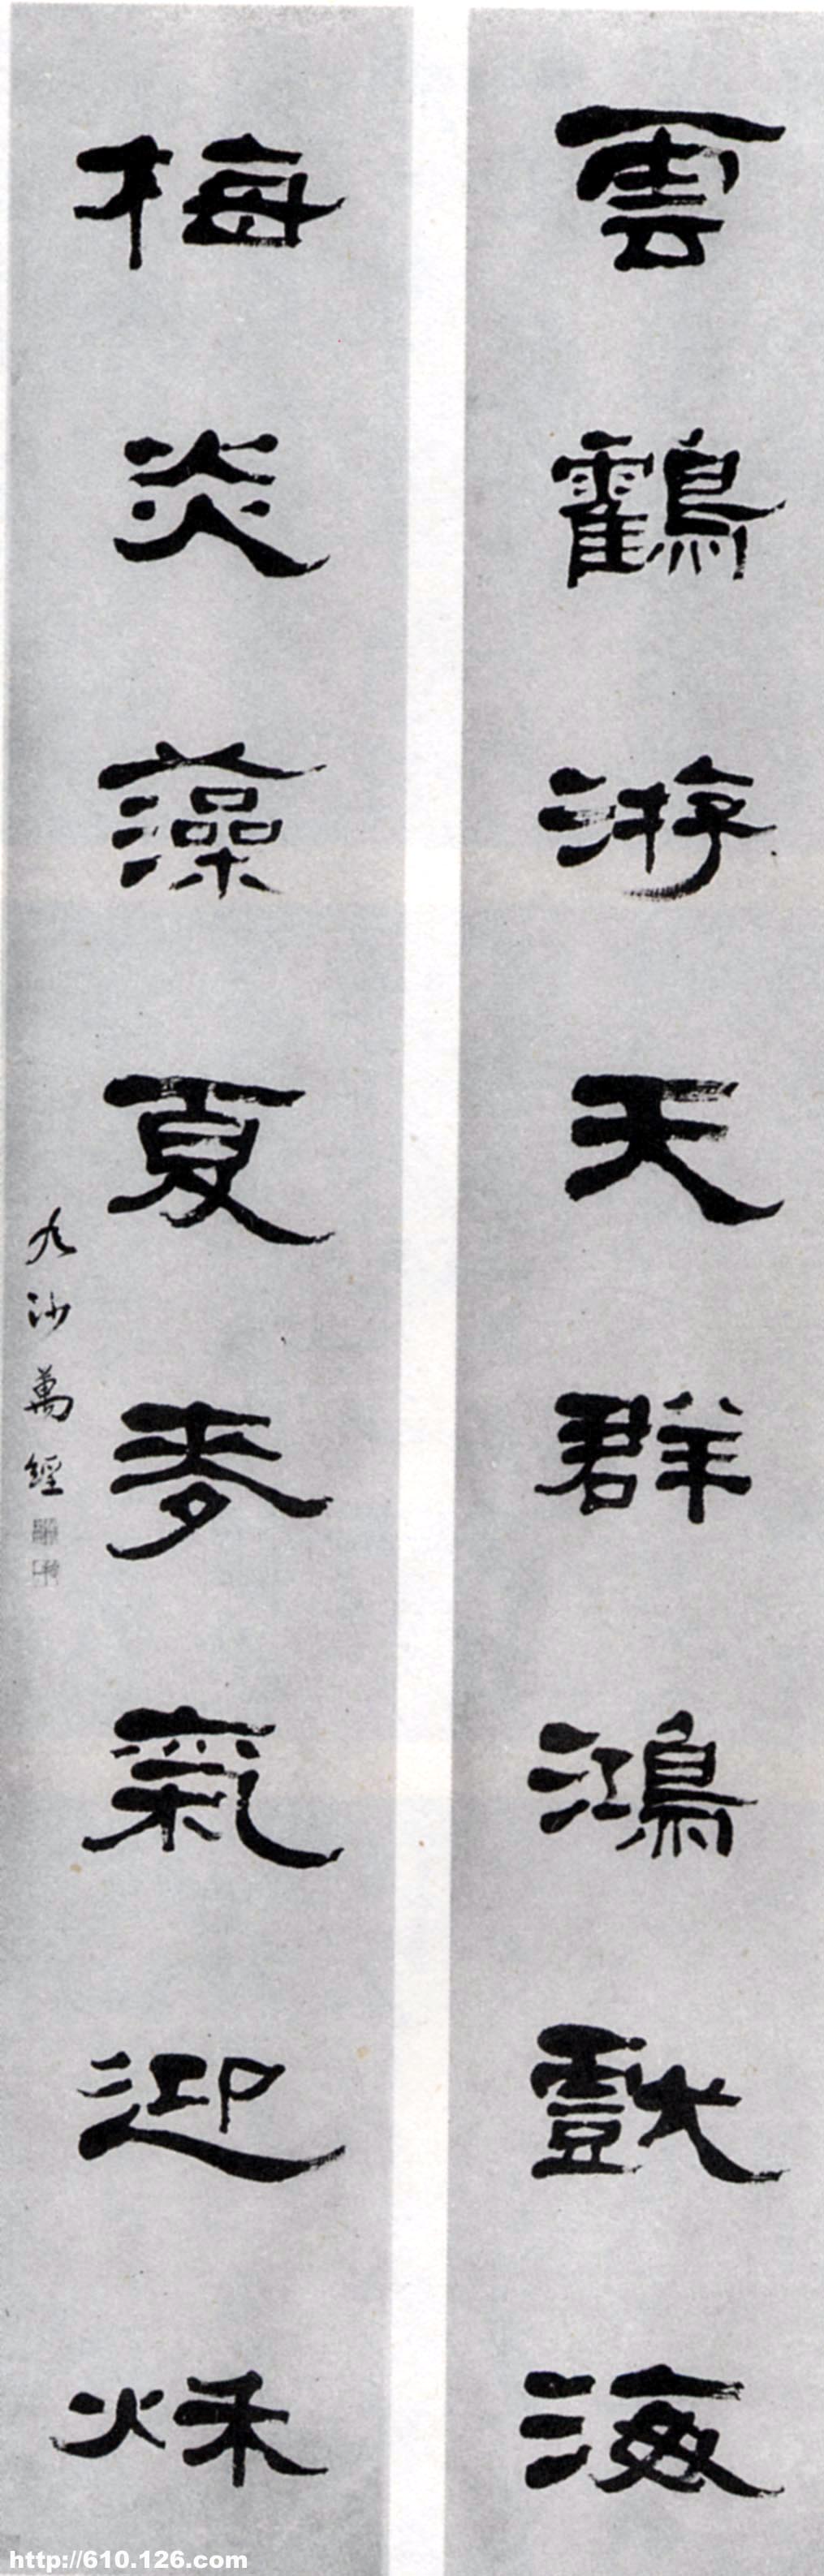 雲鸖游天群鴻戲海
梅炎藻夏麥氣迎秌
九沙萬經
http://610.126.com